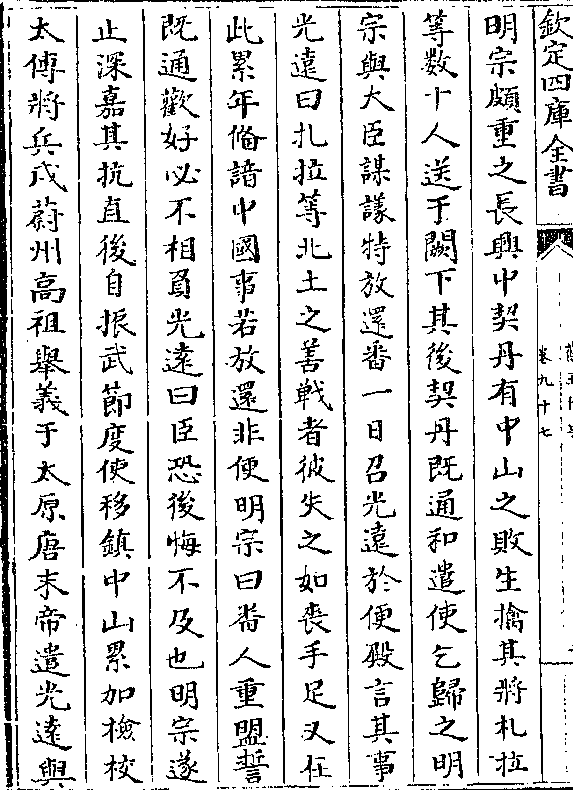 欽定四庫全書
卷九十七
明宗頗重之長興中契丹有中山之敗生擒其將札拉
等數十人送于闕下其後契丹既通和遣使乞歸之明
宗與大臣謀議特放還番一日召光遠於便殿言其事
光遠曰扎拉等北土之善戰者彼失之如喪手足又在
此累年備諳中國事若放還非便明宗曰番人重盟誓
既通歡好必不相負光遠曰臣恐後悔不及也明宗遂
止深嘉其抗直後自振武節度使移鎮中山累加檢校
太傅將兵戍蔚州高祖舉義于太原唐末帝遣光遠與